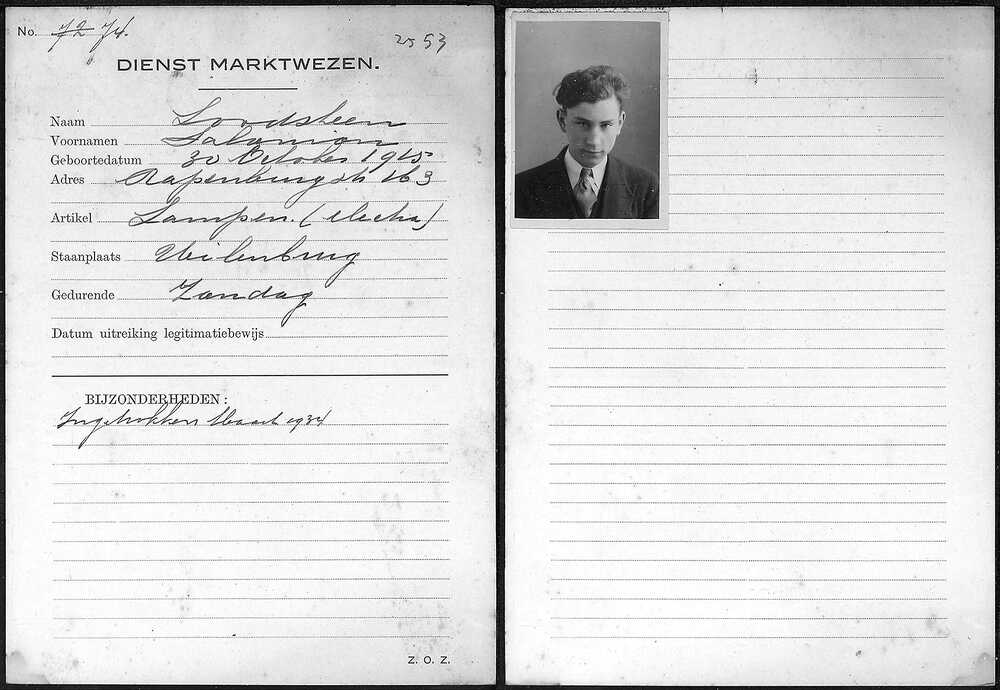 No. 72 74.
25 53
DIENST MARKTWEZEN.
Naam Loodsteen
Voornamen Salomon
Geboortedatum 30 October 1915
Adres Rapenburgstr 163
Artikel Lampen. (electra)
Staanplaats Uilenburg
Gedurende Zondag
Datum uitreiking legitimatiebewijs
BIJZONDERHEDEN:
Ingetrokken Maart 1934
Z. O. Z.